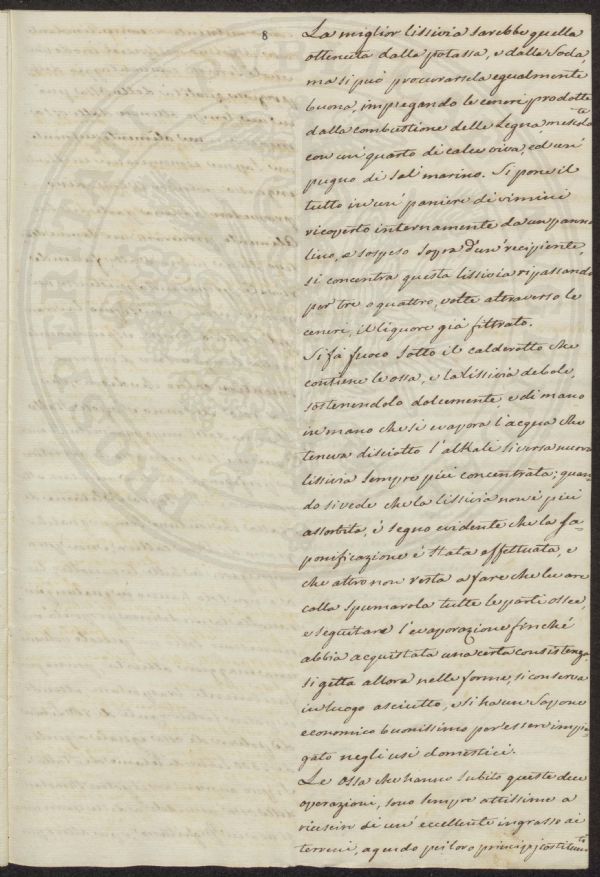 8
La miglior lissivia sarebbe quella
ottenuta dalla potassa, e dalla Soda,
ma si può procurarsela egualmente
buona, impregando le ceneri prodotte
dalla combustione delle Legna, mescolate
con un' quarto di calce viva, ed un'
pugno di sal' marino. Si pone il
tutto in un' paniere di vimini
ricoperto internamente da un panno
lino, e sospeso sopra d'un' recipiente,
si concentra questa lissivia ripassando
per tre o quattro volte attraverso le
ceneri, il liquore già filtrato.
Si fà fuoco sotto il calderotto che
contiene le ossa, e la lissivia debole,
sostenendolo dolcemente, e di mano
in mano che si evapora l'acqua che
teneva disciolto l'alkali si versa nuova
lissivia sempre più concentrata; quan-
do si vede che la lissivia non è più
assorbita, è segno evidente che la sa-
ponificazione è stata effettuata, e
che altro non resta a fare che levare
colla spumarola tutte le parti ossee,
e seguitare l'evaporazione finché
abbia acquistata una certa consistenza,
si getta allora nelle forme, si conserva
in luogo asciutto, e si ha un Sapone
economico buonissimo per essere impie-
gato negli usi domestici.
Le ossa che hanno subito queste due
operazioni, sono sempre attissime a
riescir di un' eccellente ingrasso ai
terreni, agendo pei loro principj costituenti